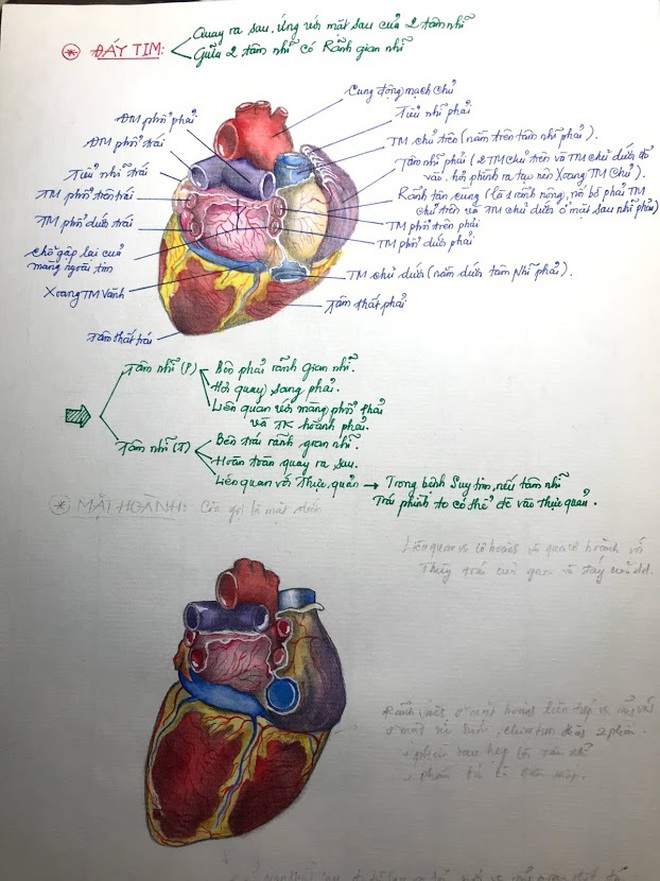 Quay ra sau, ứng với mặt sau của 2 tâm nhĩ
ĐÁY TIM:
Giữa 2 tâm nhĩ có Rãnh gian nhĩ
Cung động mạch chủ
ĐM phổi phải
Tiểu nhĩ phải
ĐM phổi trái
TM chủ trên (nằm trên tâm nhĩ phải).
Tiểu nhĩ trái
Tâm nhĩ phải (2 TM chủ trên và TM chủ dưới đổ
vào. hơi phình ra tạo nên Xoang TM Chủ).
TM phổi trên trái
Rãnh tận cùng (là 1 rãnh nông, nối bờ phải TM
chủ trên và TM chủ dưới ở mặt sau nhĩ phải)
TM phổi dưới trái
TM phổi trên phải
TM phổi dưới phải
chỗ gập lại của
màng ngoài tim
TM chủ dưới (nằm dưới tâm Nhĩ phải).
Xoang TM Vành
Tâm thất phải
Tâm thất trái
Tâm nhĩ (P)
Bên phải rãnh gian nhĩ.
Hơi quay sang phải.
Liên quan với màng phổi phải
và TK hoành phải.
Tâm nhĩ (T)
Bên trái rãnh gian nhĩ.
Hoàn toàn quay ra sau.
Liên quan với Thực quản → Trong bệnh Suy tim, nếu tâm nhĩ
Trái phình to có thể đè vào thực quản.
MẶT HOÀNH: Còn gọi là mặt dưới
Liên quan cơ hoành và qua cơ hoành với
Thùy trái của gan và đáy của dd.